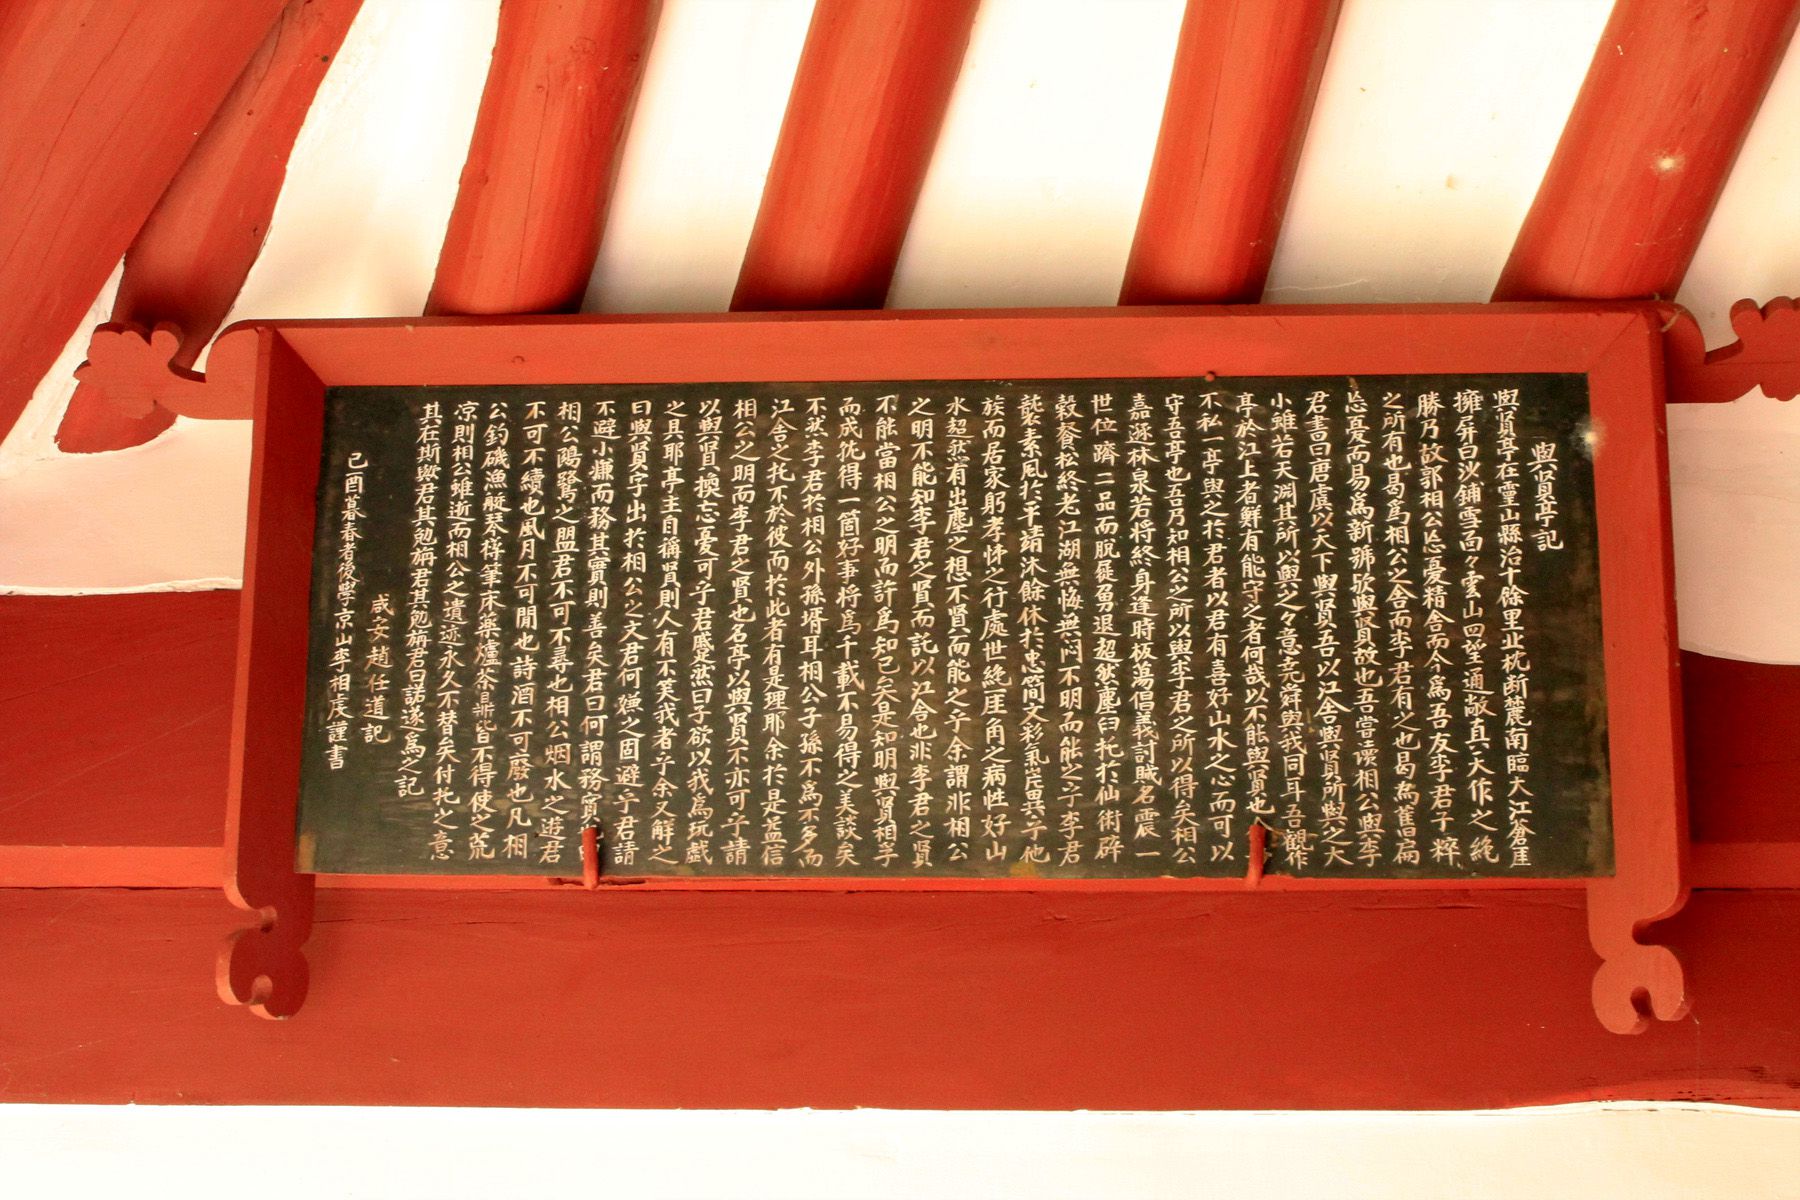 與賢亭記
與賢亭在靈山縣治十餘里止枕断麓南臨大江蒼崖
擁屏白沙鋪雪面々雲山四望通敞真天作之絶
勝乃故郭相公忘憂精舍而今為吾友李君子粹
之所有也曷為相公之舍而李君有之也曷為舊扁
忘憂而易為新號欤與賢故也吾嘗讀相公與李
君書曰唐虞以天下與賢吾以江舍與賢所與之大
小雖若天淵其所以與之々意尭舜與我同耳吾観作
亭於江上者鮮有能守之者何哉以不能與賢也吾
不私一亭與之於君者以君有喜好山水之心而可以
守吾亭也吾乃知相公之所以與李君之所以得矣相公
嘉遯林泉若将終身逢時板蕩倡義討賊名震一
世位躋二品而脱屣勇退超然塵臼托於仙術辟
穀餐松終老江湖無悔無闷不明而能之乎李君
襲素風於平靖沐餘休於忠簡文彩氣岸異乎他
族而居家躬孝悌之行處世絶崖角之病性好山
水超然有出塵之想不賢而能之乎余謂非相公
之明不能知李君之賢而託以江舍也非李君之賢
不能當相公之明而許為知己矣是知明與賢相孚
而成就得一箇好事将為千載不易得之美談矣
不然李君於相公外孫壻耳相公子孫不為不多而
江舍之托不於彼而於此者有是理耶余於是益信
相公之明而李君之賢也名亭以與賢不亦可乎請
以與賢換忘憂可乎君蹙然曰子欲以我為玩戯
之具耶亭主自稱賢則人有不笑我者乎余又解之
曰與賢字出於相公之文君何嫌之固避乎君請
不避小嫌而務其實則善矣君曰何謂務實曰
相公鷗鷺之盟君不可不尋也相公烟水之遊君
不可不續也風月不可閒也詩酒不可廢也凡相
公釣磯漁艇琴樽筆床藥爐茶鼎皆不得使之荒
凉則相公雖逝而相公之遺迹永久不替矣付托之意
其在斯歟君其勉旃君其勉旃君曰諾遂為之記
咸安趙任道記
己酉暮春者後學京山李相虔謹書